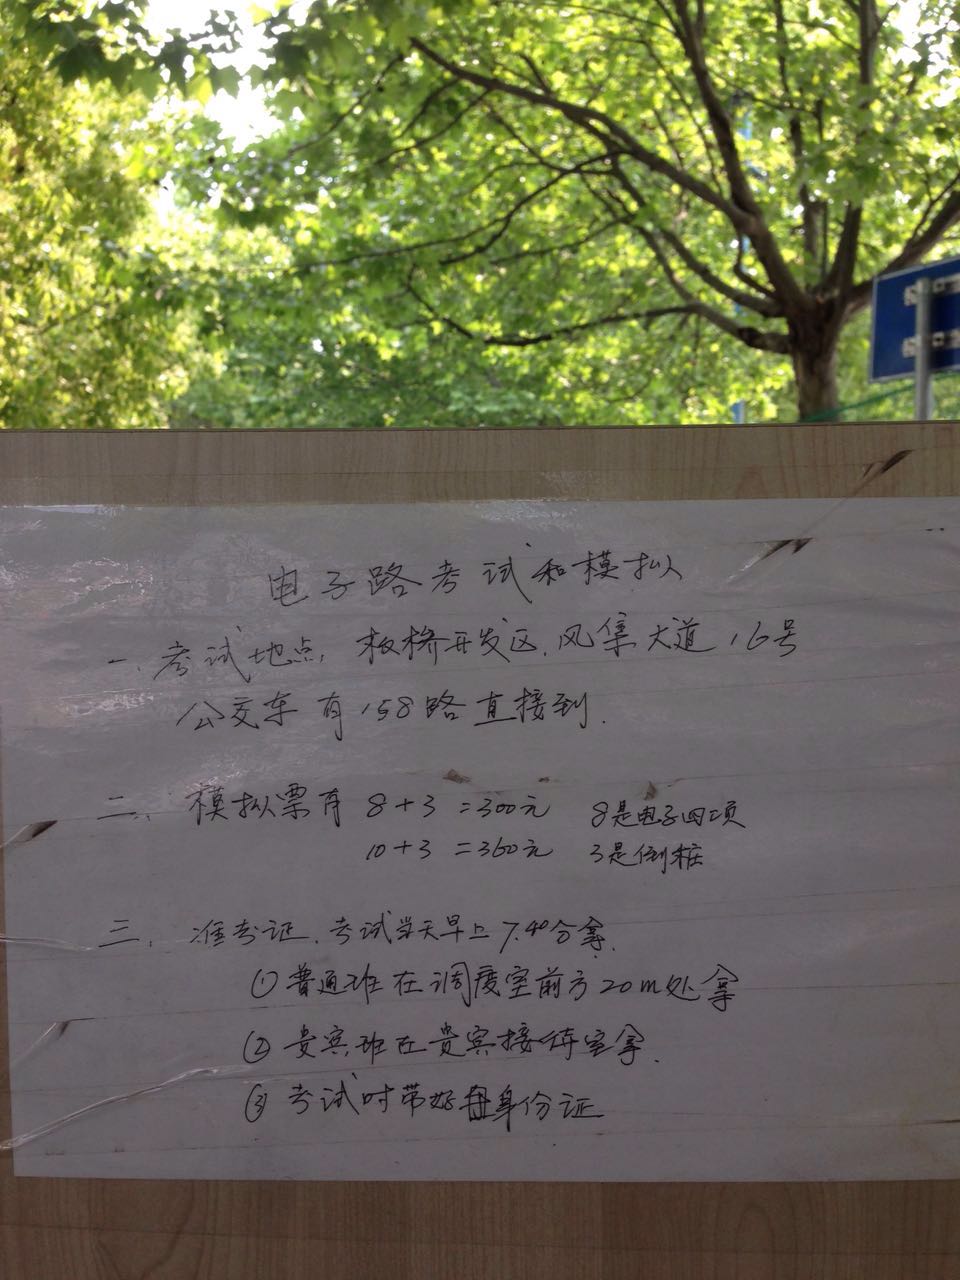 电子路考试和模拟
一、考试地点, 板桥开发区.风集大道16号
公交车有158路直接到.
二、模拟票有 8+3=300元 8是电子四项
10+3=360元 3是倒桩
三、准考证、考试当天早上7.40分拿.
①普通班在调度室前方20m处拿
②贵宾班在贵宾接待室拿.
③考试时带好身份证